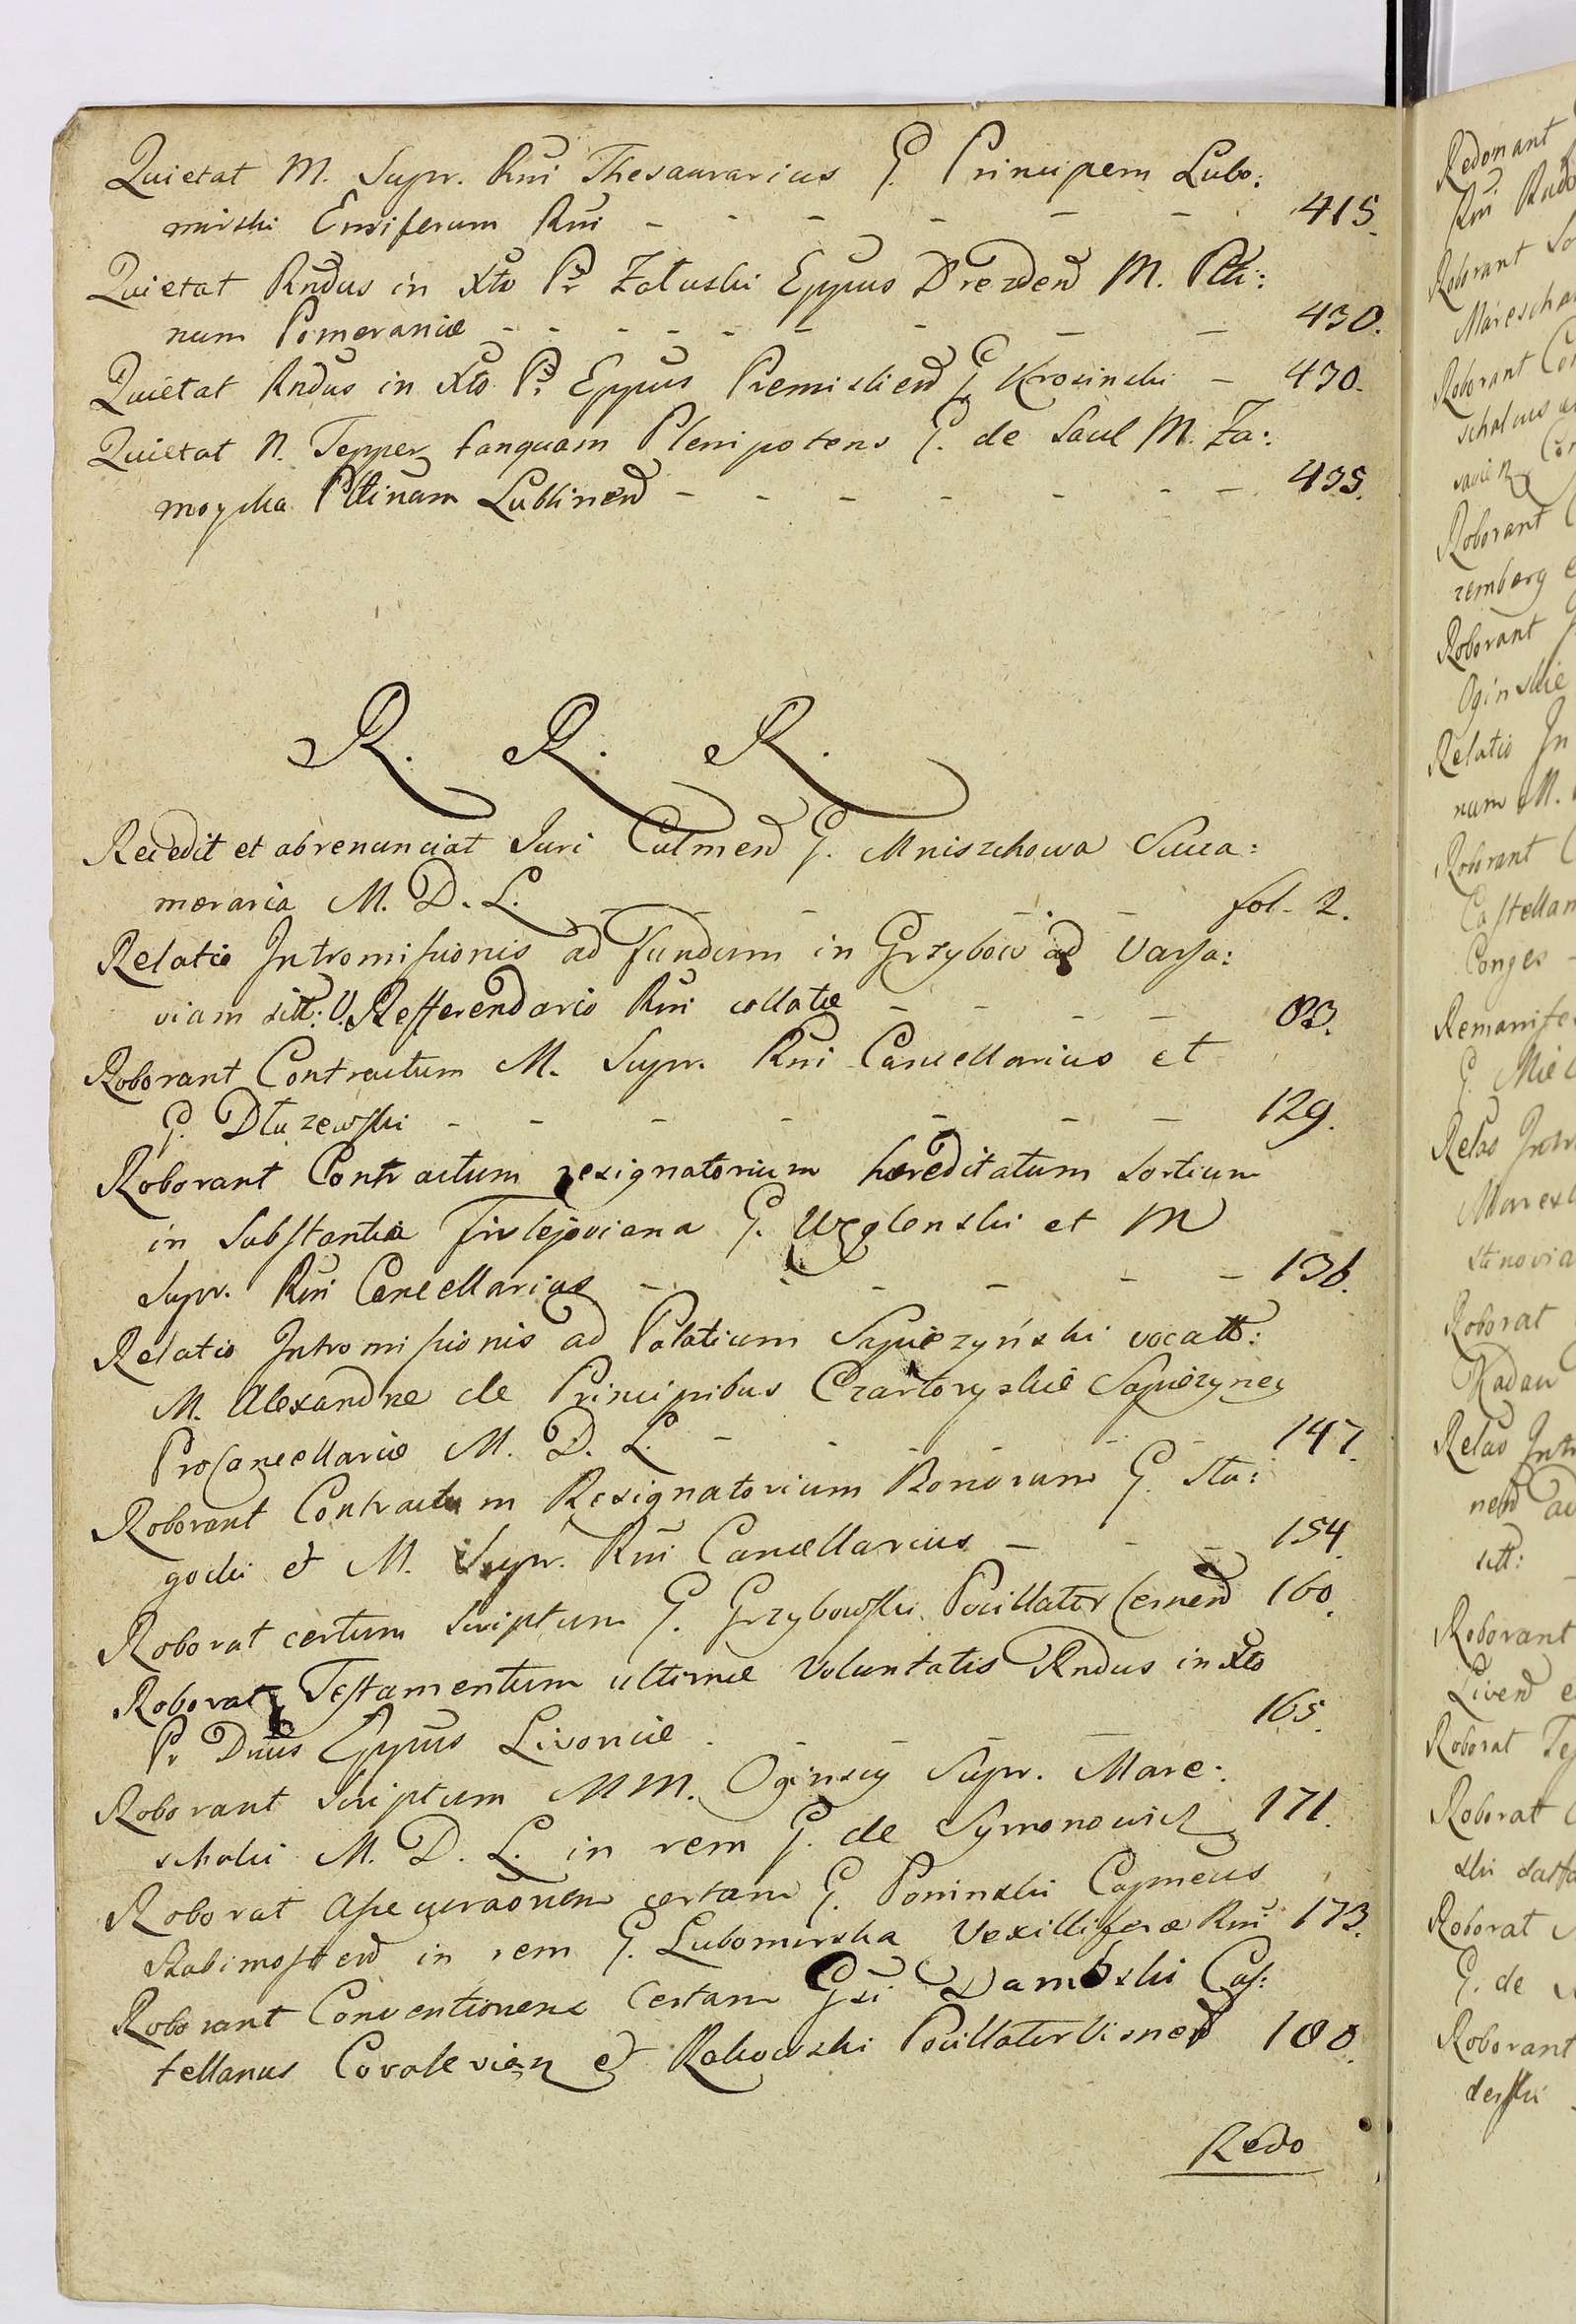 Quietat M. Supr. Rni Thesaurarius G. Principem Lubo:
mirski Ensiferum Rni - - - - - - 415.
Quietat Rndus in Xto Pr Załuski Eppus Drezdens M. Plti:
num Pomeraniæ - - - - - - - - 430.
Quietat Rndus in Xto Pr Eppus Premisliens G. Krosinski - 430.
Quietat N. Tepper tanquam Plenipotens G. de Saul M. Za:
moyska Pltinam Lublinens - - - - - - - 435.
R. R. R.
Recedit et abrenunciat Juri Culmens G. Mniszchowa Succa:
meraria M. D. L. - - - - - fol. 2.
Relatio Intromissionis ad Fundum in Grzybow ad Varsa:
viam sitt: V. Refferendario Rni collatæ - - - - 83.
Roborant Contractum M. Supr. Rni Cancellarius et
G. Dłuzewski - - - - - - - 129.
Roborant Contractum resignatorium hæreditatum sortium
in Substantia Firlejoviana G. Węglenski et M
Supr. Rni Cancellarius - - - - - - 136.
Relatio Intromissionis ad Palatium Sapiezyński vocatt:
M. Alexandræ de Principibus Czartoryskie Sapiezyney
ProCancellariæ M. D. L. - - - - - 147.
Roborant Contractum Resignatorium Bonorum G. Sta:
gocki et M. Supr. Rni Cancellarius - - - 154.
Roborat certum Scriptum G. Grzybowski Pocillator Cernens 160.
Roborat Testamentum ultimæ Voluntatis Rndus in Xto
Pr Dnus Eppus Livoniæ - - - 165.
Roborant Scriptum MM. Oginscy Supr. Mare:
schalci M. D. L. in rem G. de Symonowicz 171.
Roborat Assecuraonem certam G. Poninski Capneus
Babimostens in rem G. Lubomirska Vexilliferæ Rni 173.
Roborant Conventionem Certam Gsi Dambski Cas:
tellanus Covalevien et Rakowski Pocillator Visnens 180.
Redo
Redonant
Rni
Roborant
Roborant
Roborant
zemberg
Roborant
Oginskie
Relatio In
num M.
Roborant
Castellan
Conges
Remanife
G.
Relao Intr
Roborat
Radau
Relao Intr
nens
sitt:
Roborant
Livens
Roborat Tes
Roborat
Roborat
G. de
Roborant
derski